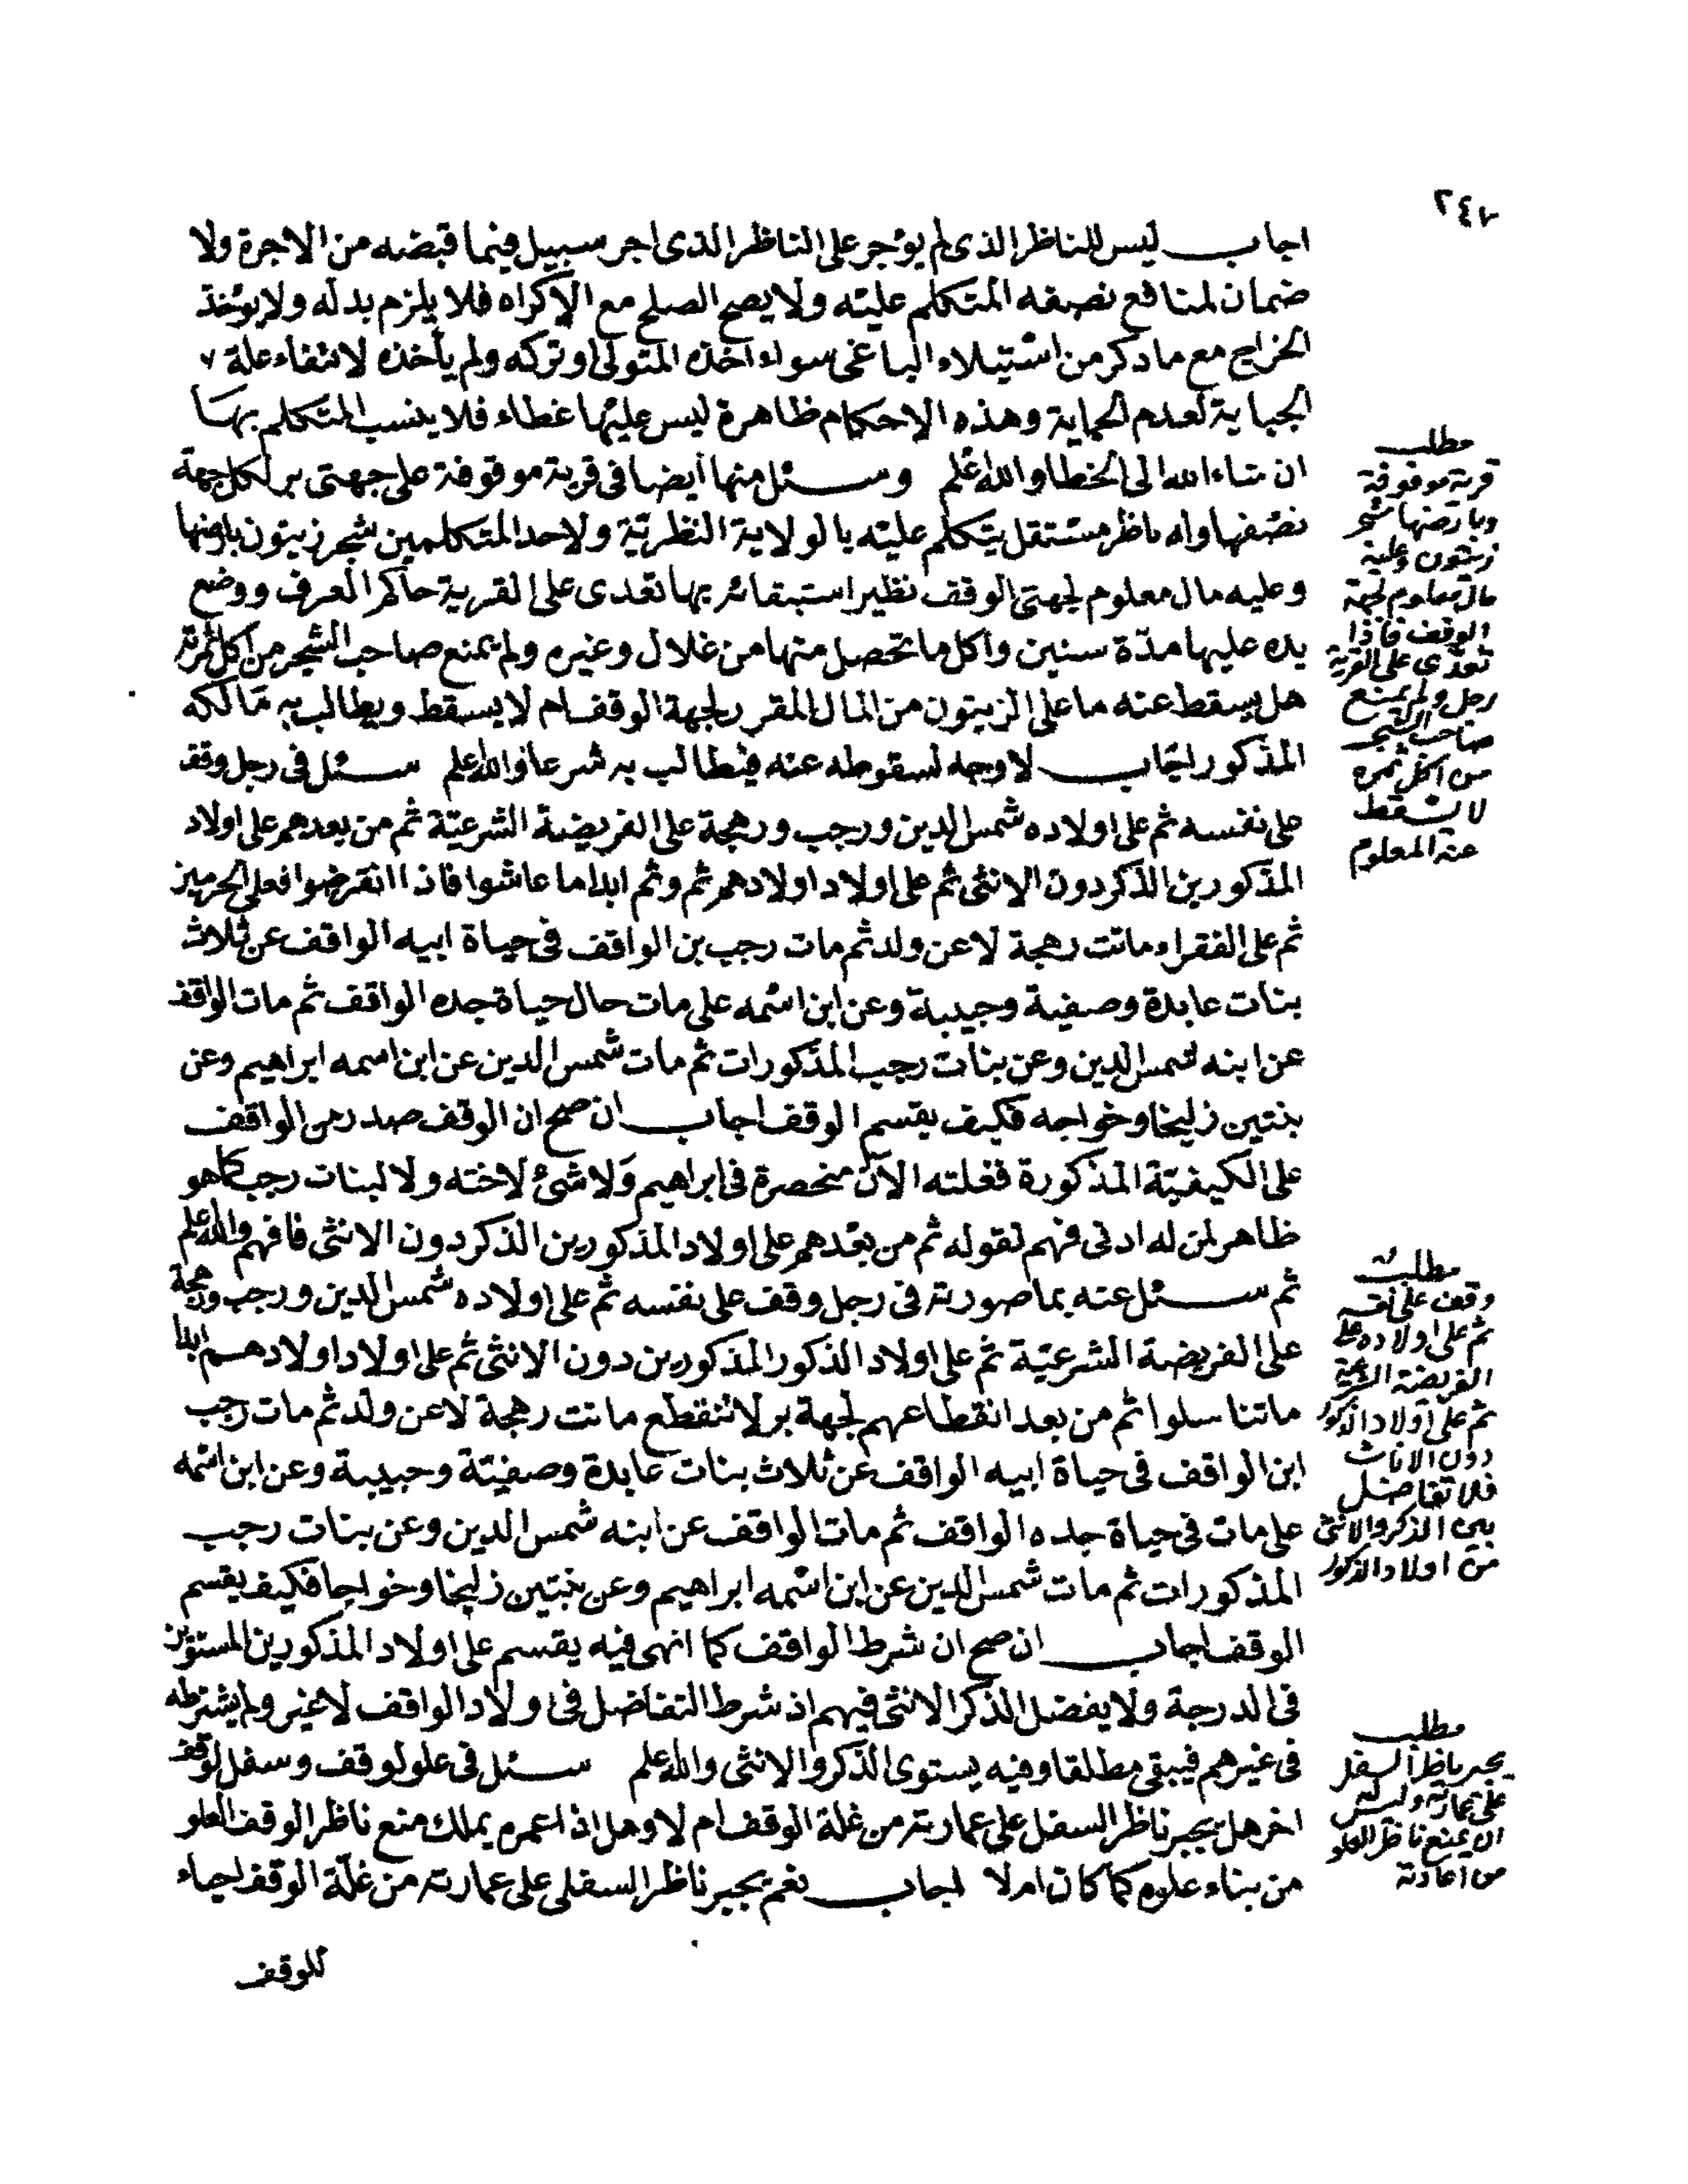 اجاب ليس للناظر الذى لم يؤجر على الناظر الذى اجر سبيل فيما قبضه من الاجرة ولا
ضمان لمنافع نصفه المتكلم عليه ولا يصح الصلح مع الاكراه فلا يلزم بدله ولا يؤخذ
الخراج مع ما ذكر من استيلاء الباغى سواء اخذه المتولى او تركه ولم يأخذه لانتفاء علة
الجباية لعدم الحماية وهذه الاحكام ظاهرة ليس عليها غطاء فلا ينسب المتكلم بها
ان شاء الله الى الخطا والله اعلم وسئل منها ايضا فى قرية موقوفة على جهتى بر لكل جهة
نصفها وله ناظر مستقل يتكلم عليه بالولاية النظرية ولاحد المتكلمين شجر زيتون بارضها
وعليه مال معلوم لجهتى الوقف نظير استبقائه بها تعدى على القرية حاكم العرف ووضع
يده عليها مدة سنين واكل ما تحصل منها من غلال وغيره ولم يمنع صاحب الشجر من اكل ثمرته
هل يسقط عنه ما على الزيتون من المال المقرر لجهة الوقف ام لا يسقط ويطالب به مالكه
المذكور اجاب لا وجه لسقوطه عنه فيطالب به شرعا والله اعلم سئل فى رجل وقف
على نفسه ثم على اولاده شمس الدين ورجب ورهجة على الفريضة الشرعية ثم من بعدهم على اولاد
المذكورين الذكر دون الانثى ثم على اولاد اولادهم ثم وثم ابدا ما عاشوا فاذا انقرضوا فعلى الحرمين
ثم على الفقراء وماتت رهجة لا عن ولد ثم مات رجب بن الواقف فى حياة ابيه الواقف عن ثلاث
بنات عابدة وصفية وحبيبة وعن ابن اسمه على مات حال حياة جده الواقف ثم مات الواقف
عن ابنه شمس الدين وعن بنات رجب المذكورات ثم مات شمس الدين عن ابن اسمه ابراهيم وعن
بنتين زليخا وخواجه فكيف يقسم الوقف اجاب ان صح ان الوقف صدر من الواقف
على الكيفية المذكورة فغلته الآن منحصرة فى ابراهيم ولا شئ لاخته ولا لبنات رجب كما هو
ظاهر لمن له ادنى فهم لقوله ثم من بعدهم على اولاد المذكورين الذكر دون الانثى فافهم والله اعلم
ثم سئل عنه بما صورته فى رجل وقف على نفسه ثم على اولاده شمس الدين ورجب ورهجة
على الفريضة الشرعية ثم على اولاد الذكور المذكورين دون الانثى ثم على اولاد اولادهم ابدا
ما تناسلوا ثم من بعد انقطاعهم لجهة بر لا تنقطع ماتت رهجة لا عن ولد ثم مات رجب
ابن الواقف فى حياة ابيه الواقف عن ثلاث بنات عابدة وصفية وحبيبة وعن ابن اسمه
على مات فى حياة جده الواقف ثم مات الواقف عن ابنه شمس الدين وعن بنات رجب
المذكورات ثم مات شمس الدين عن ابن اسمه ابراهيم وعن بنتين زليخا وخواجا فكيف يقسم
الوقف اجاب ان صح ان شرط الواقف كما انهى فيه يقسم على اولاد المذكورين المستوين
فى الدرجة ولا يفضل الذكر الانثى فيهم اذ شرط التفاضل فى ولاد الواقف لا غير ولم يشترطه
فى غيرهم فيبقى مطلقا وفيه يستوى الذكر والانثى والله اعلم سئل فى علو لوقف وسفل لوقف
اخر هل يجبر ناظر السفل على عمارته من غلة الوقف ام لا وهل اذا عمره يملك منع ناظر الوقف العلو
من بناء علوه كما كان ام لا اجاب نعم يجبر ناظر السفلى على عمارته من غلة الوقف احياء
للوقف
٢٤٧
مطلب
قرية موقوفة
وبارضها شجر
زيتون وعليه
مال معلوم لجهة
الوقف فاذا
تعدى على القرية
رجل ولم يمنع
صاحب الشجر
من اكل ثمره
لا يسقط
عنه المعلوم
مطلب
وقف على نفسه
ثم على اولاده على
الفريضة الشرعية
ثم على اولاد الذكور
دون الاناث
فلا تفاضل
بين الذكر والانثى
من اولاد الذكور
مطلب
يجبر ناظر السفل
على عمارته وليس له
ان يمنع ناظر العلو
من اعادته